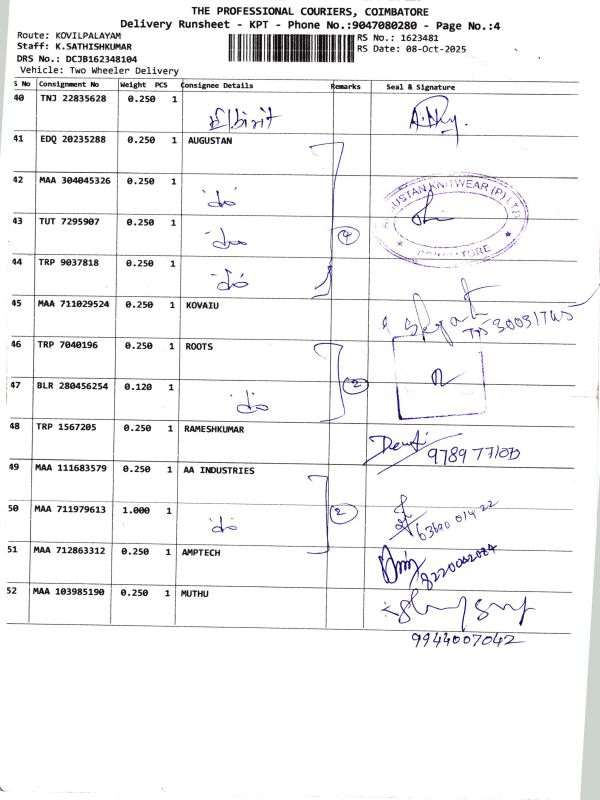 THE PROFESSIONAL COURIERS, COIMBATORE
Delivery Runsheet - KPT - Phone No.:9047080280 - Page No.:4
Route: KOVILPALAYAM
Staff: K.SATHISHKUMAR
DRS No.: DCJB162348104
Vehicle: Two Wheeler Delivery
RS No.: 1623481
RS Date: 08-Oct-2025
S No Consignment No Weight PCS Consignee Details Remarks Seal & Signature
40 TNJ 22835628 0.250 1
41 EDQ 20235288 0.250 1 AUGUSTAN
42 MAA 304045326 0.250 1 do
43 TUT 7295907 0.250 1 do 4
44 TRP 9037818 0.250 1 do
KNITWEAR (P) LTD
45 MAA 711029524 0.250 1 KOVAIU
46 TRP 7040196 0.250 1 ROOTS
47 BLR 280456254 0.120 1 do 2
48 TRP 1567205 0.250 1 RAMESHKUMAR
49 MAA 111683579 0.250 1 AA INDUSTRIES
50 MAA 711979613 1.000 1 do 2 63690 01422
51 MAA 712863312 0.250 1 AMPTECH 8220042084
52 MAA 103985190 0.250 1 MUTHU
9944007042